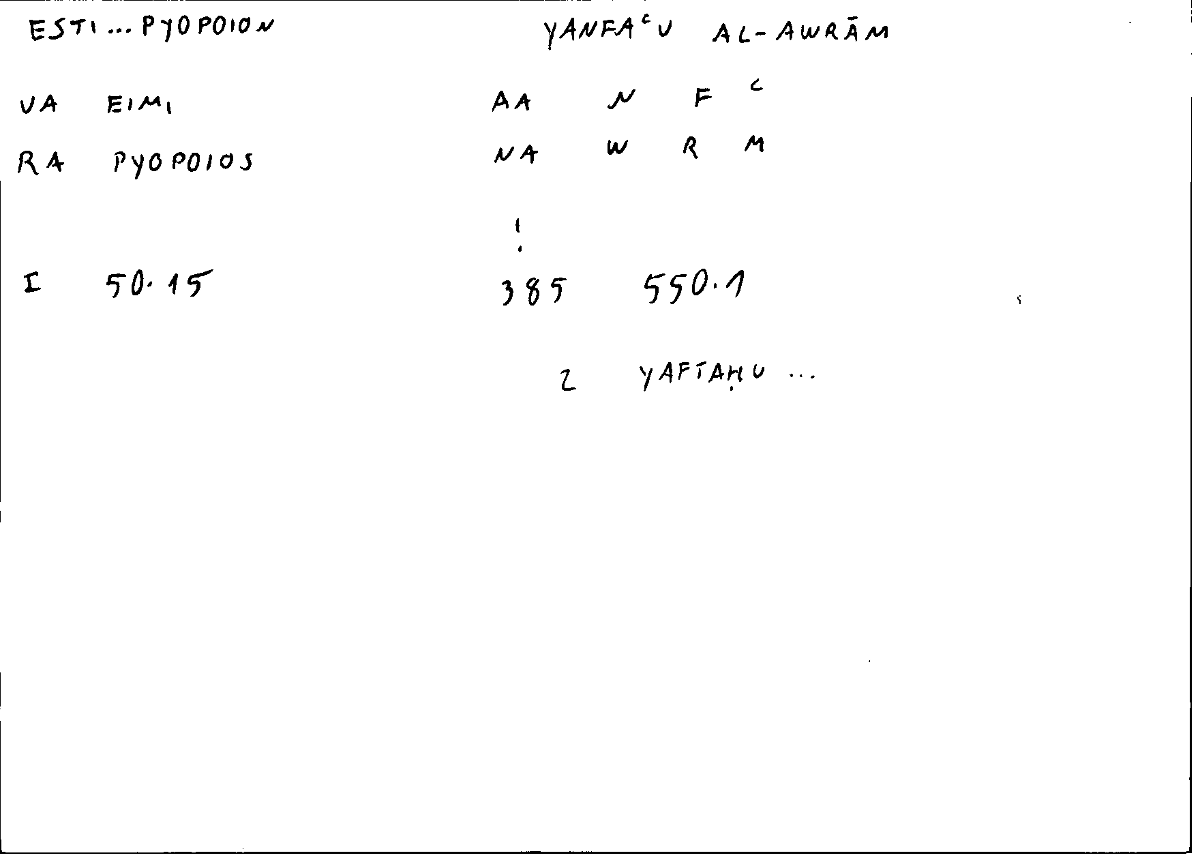 ESTI...PYOPOION YANFAᶜU AL-AWRĀM
VA EIMI AA N F ᶜ
RA PYOPOIOS NA W R M
!
I 50.15 385 550.1
2 YAFTAḤU ...